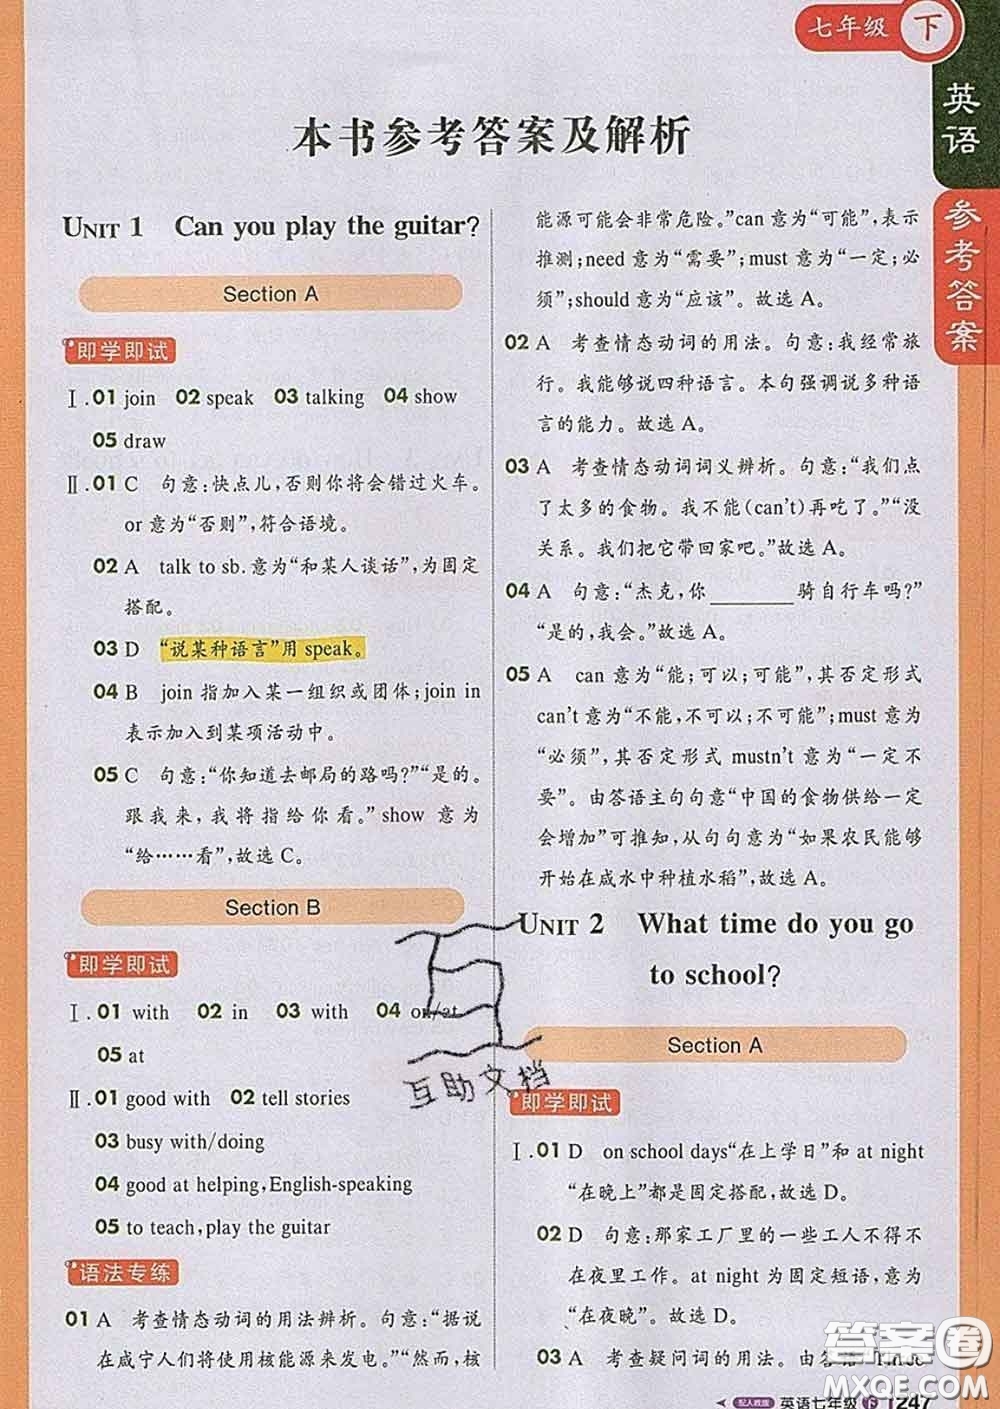 七年级 下
英语
参考答案
本书参考答案及解析
UNIT 1 Can you play the guitar?
Section A
即学即试
Ⅰ.01 join 02 speak 03 talking 04 show
05 draw
Ⅱ.01 C 句意:快点儿,否则你将会错过火车。
or意为“否则”,符合语境。
02 A talk to sb.意为“和某人谈话”,为固定
搭配。
03 D “说某种语言”用 speak。
04 B join指加入某一组织或团体;join in
表示加入到某项活动中。
05 C 句意:“你知道去邮局的路吗?”“是的。
跟我来,我将指给你看。”show 意为
“给……看”,故选 C。
Section B
即学即试
Ⅰ.01 with 02 in 03 with 04 on/at
05 at
Ⅱ.01 good with 02 tell stories
03 busy with/doing
04 good at helping,English-speaking
05 to teach,play the guitar
语法专练
01 A 考查情态动词的用法辨析。句意:“据说
在咸宁人们将使用核能源来发电。”“然而,核
能源可能会非常危险。”can 意为“可能”,表示
推测;need 意为“需要”;must 意为“一定;必
须”;should 意为“应该”。故选 A。
02 A 考查情态动词的用法。句意:我经常旅
行。我能够说四种语言。本句强调说多种语
言的能力。故选 A。
03 A 考查情态动词词义辨析。句意:“我们点
了太多的食物。我不能(can't)再吃了。”“没
关系。我们把它带回家吧。”故选 A。
04 A 句意:“杰克,你________骑自行车吗?”
“是的,我会。”故选 A。
05 A can 意为“能;可以;可能”,其否定形式
can't 意为“不能,不可以;不可能”;must 意为
“必须”,其否定形式 mustn't 意为“一定不
要”。由答语主句句意“中国的食物供给一定
会增加”可推知,从句句意为“如果农民能够
开始在咸水中种植水稻”。故选 A。
UNIT 2 What time do you go
to school?
Section A
即学即试
Ⅰ.01 D on school days“在上学日”和 at night
“在晚上”都是固定搭配,故选 D。
02 D 句意:那家工厂里的一些工人不得不
在夜里工作。at night 为固定短语,意为
“在夜晚”。故选 D。
03 A 考查疑问词的用法。由答语
互助文档
答案圈
MXQE.COM
配人教版 英语七年级 下 247